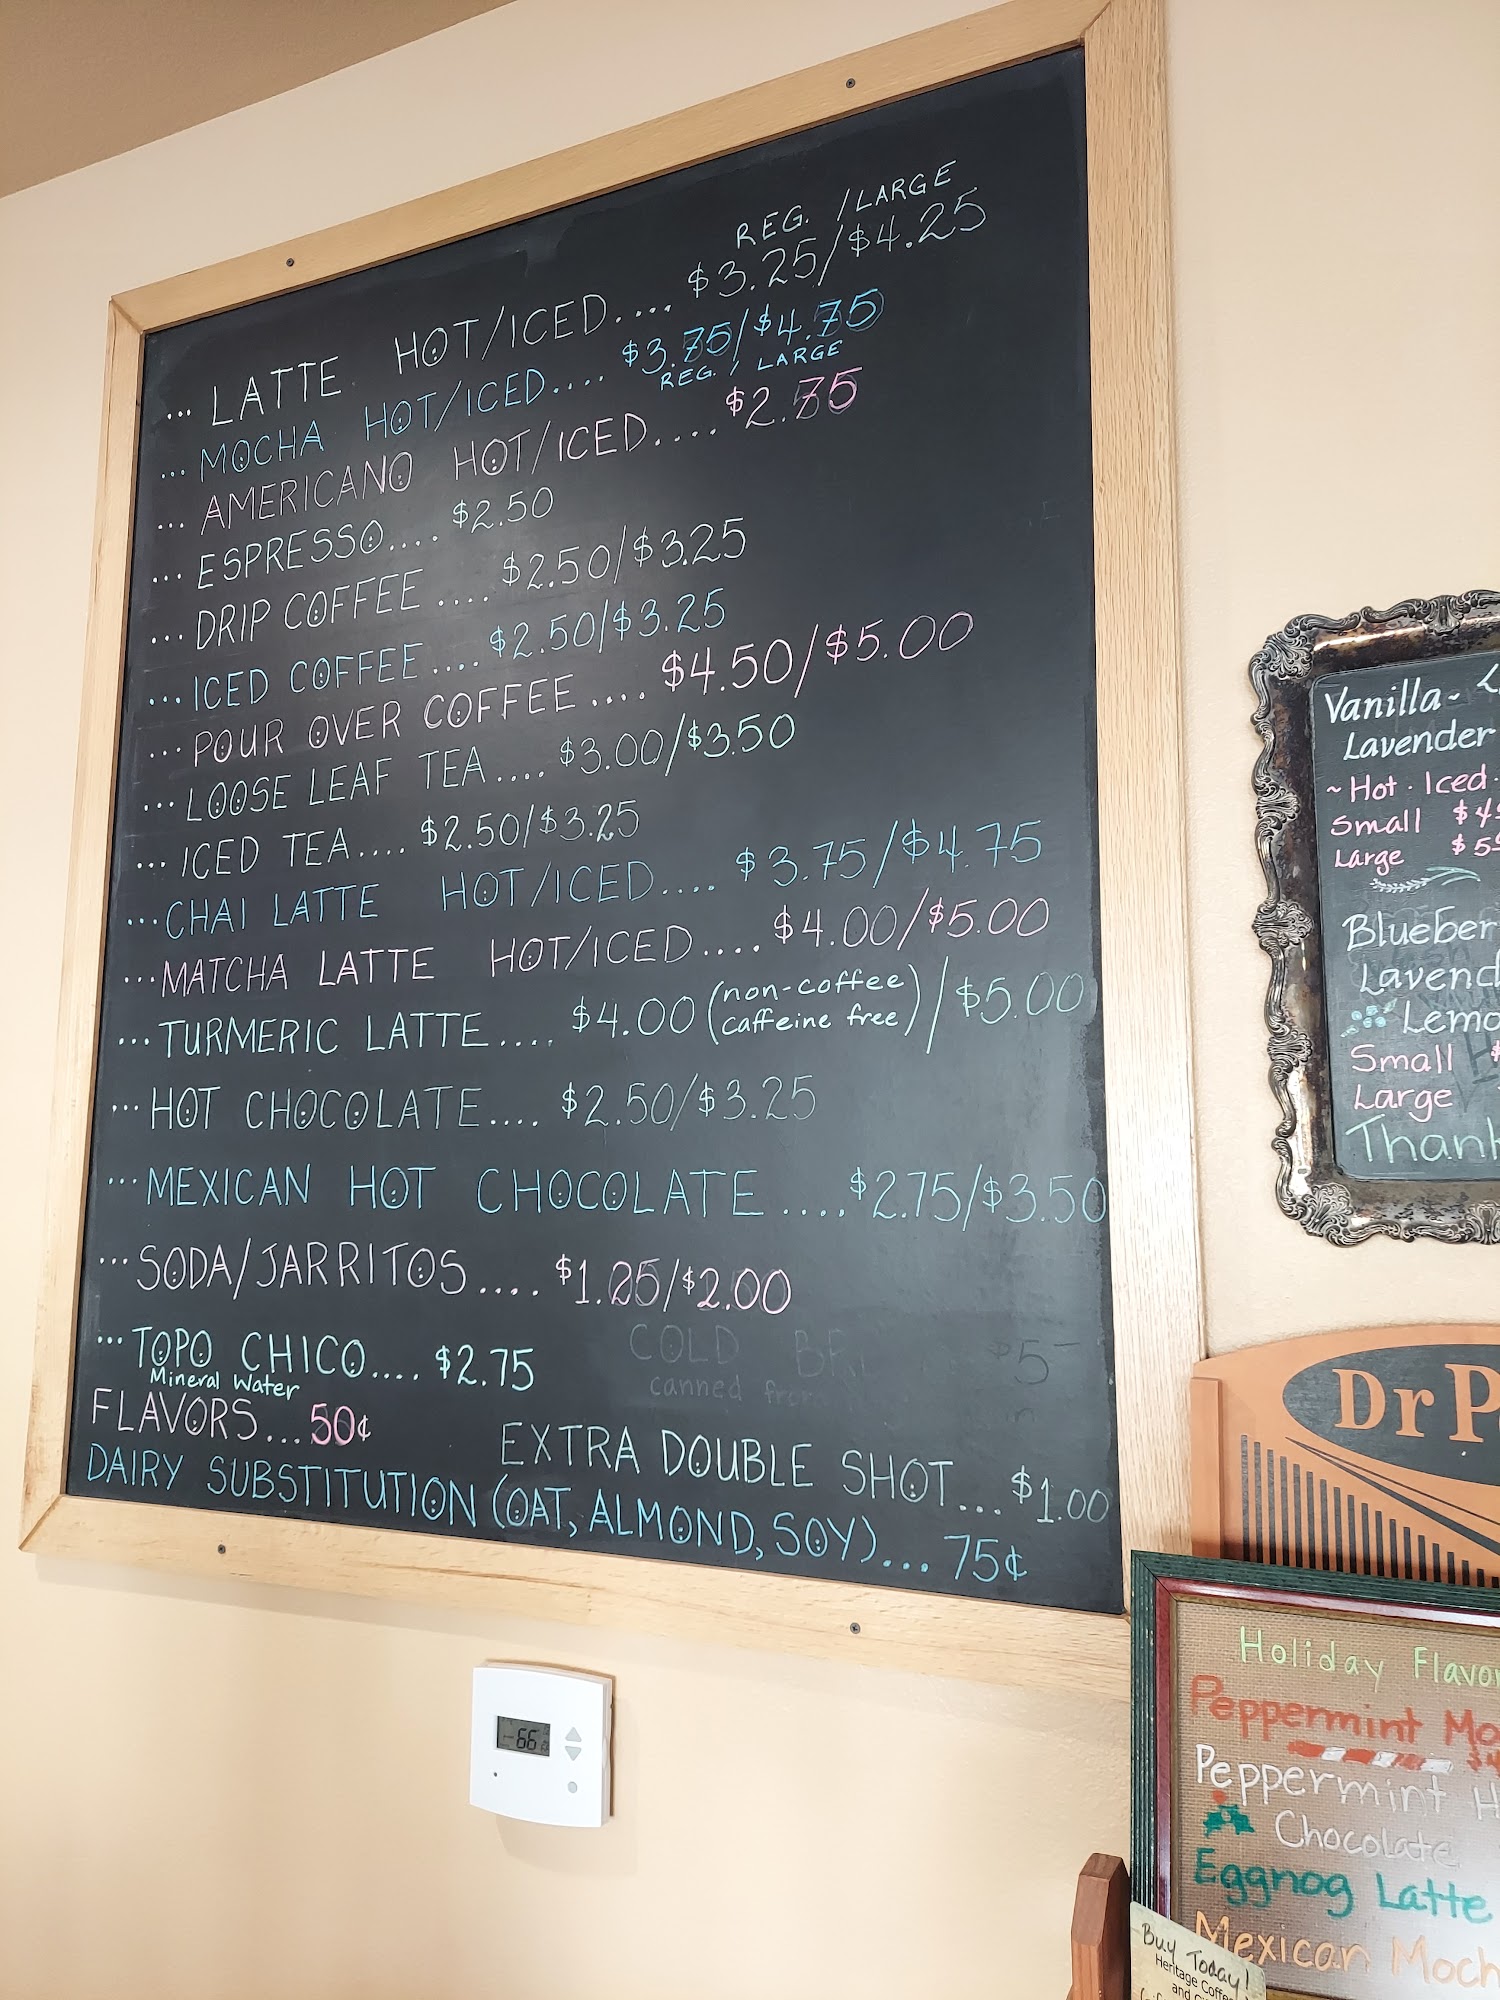 REG. /LARGE
... LATTE HOT/ICED.... $3.25/$4.25
... MOCHA HOT/ICED.... $3.75/$4.75
REG. / LARGE
... AMERICANO HOT/ICED.... $2.75
... ESPRESSO.... $2.50
... DRIP COFFEE .... $2.50/$3.25
... ICED COFFEE.... $2.50/$3.25
... POUR OVER COFFEE .... $4.50/$5.00
... LOOSE LEAF TEA.... $3.00/$3.50
... ICED TEA.... $2.50/$3.25
... CHAI LATTE HOT/ICED.... $3.75/$4.75
... MATCHA LATTE HOT/ICED.... $4.00/$5.00
... TURMERIC LATTE.... $4.00 (non-coffee caffeine free) / $5.00
... HOT CHOCOLATE.... $2.50/$3.25
... MEXICAN HOT CHOCOLATE .... $2.75/$3.50
... SODA/JARRITOS.... $1.25/$2.00
... TOPO CHICO.... $2.75
Mineral Water
COLD
canned
FLAVORS... 50¢
EXTRA DOUBLE SHOT... $1.00
DAIRY SUBSTITUTION (OAT, ALMOND, SOY)... 75¢
Vanilla~
Lavender
~Hot · Iced
Small
Large
Blueber
Lavend
Lemo
Small
Large
Thank
Dr P
66
Holiday Flavo
Peppermint Mo
Peppermint H
Chocolate
Eggnog Latte
Mexican Moch
Buy Today!
Heritage Coffe
and